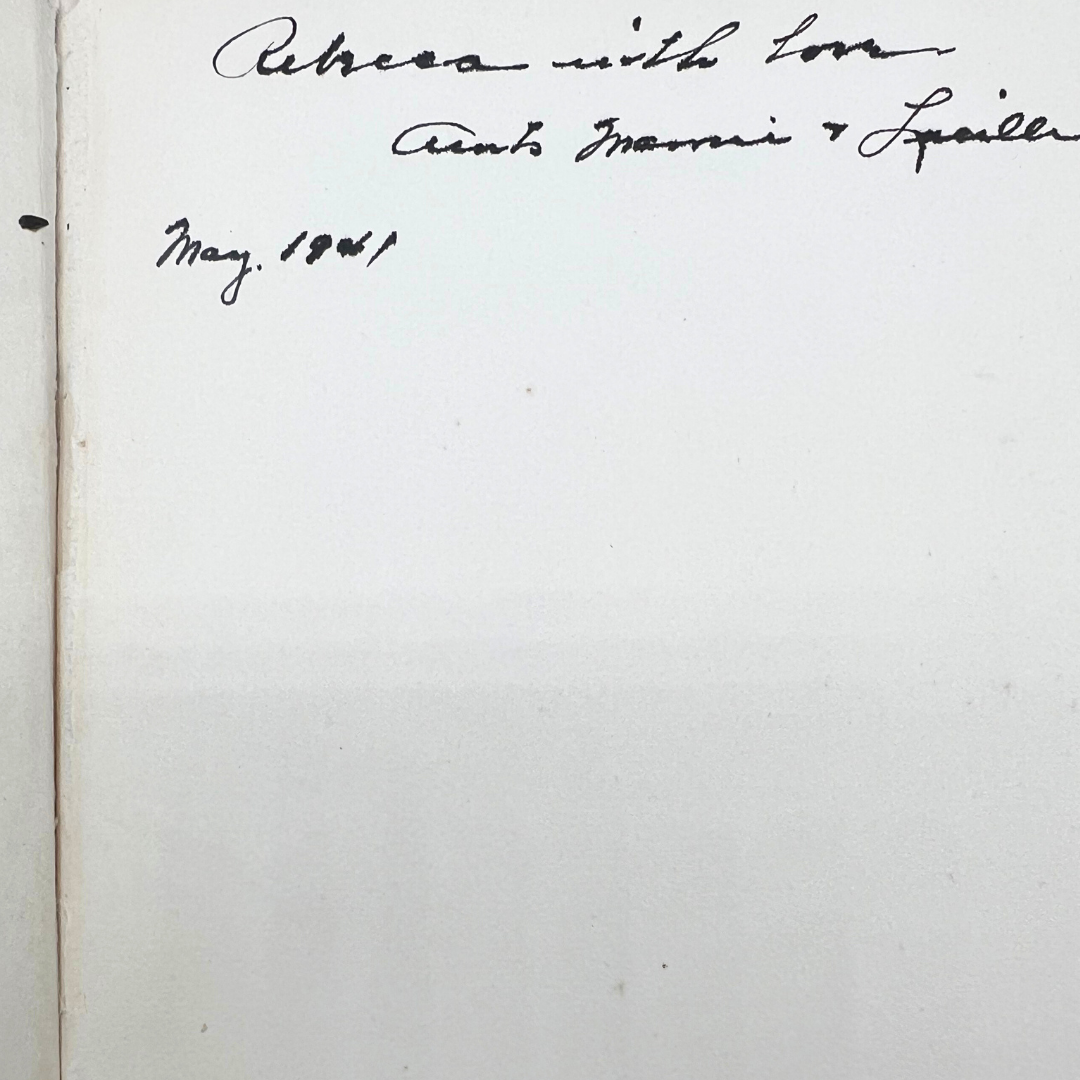 Rebecca with love
Aunts Mamie & Lucille
May. 1941